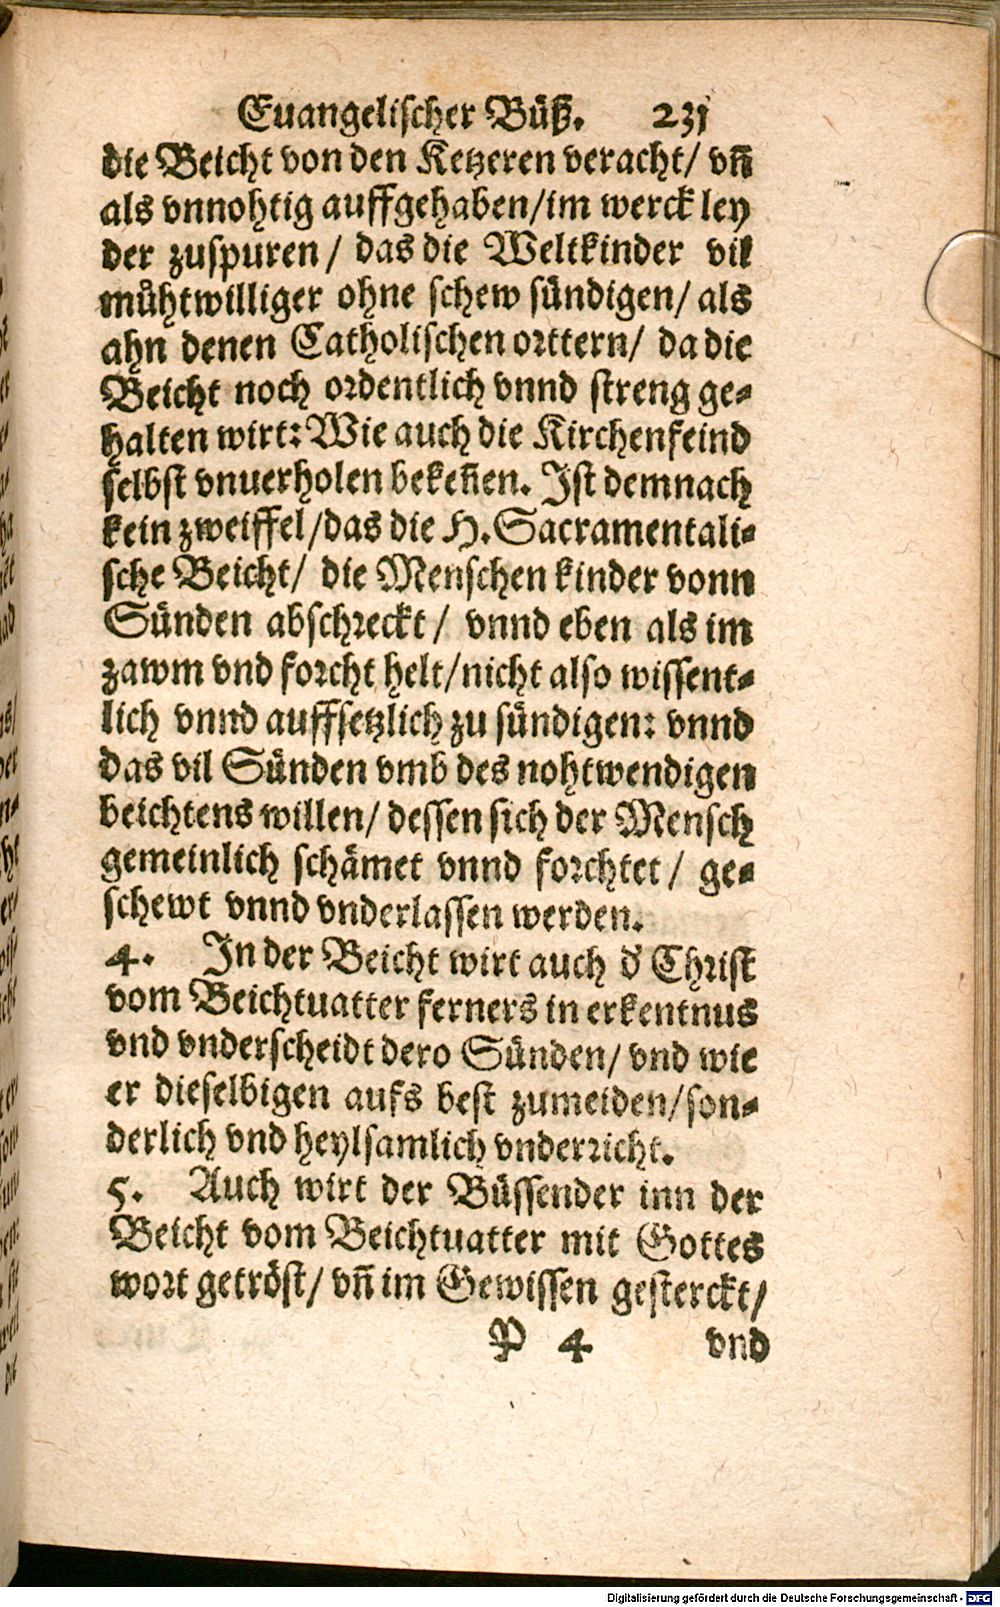 Euangelischer Büß. 231
die Beicht von den Ketzeren veracht/ vn̄
als vnnohtig auffgehaben/im werck ley
der zuspuren/ das die Weltkinder vil
můhtwilliger ohne schew sündigen/ als
ahn denen Catholischen orttern/ da die
Beicht noch ordentlich vnnd streng ge-
halten wirt: Wie auch die Kirchenfeind
selbst vnuerholen beken̄en. Ist demnach
kein zweiffel/das die H. Sacramentali-
sche Beicht/ die Menschen kinder vonn
Sünden abschreckt/ vnnd eben als im
zawm vnd forcht helt/nicht also wissent-
lich vnnd auffsetzlich zu sündigen: vnnd
das vil Sünden vmb des nohtwendigen
beichtens willen/ dessen sich der Mensch
gemeinlich schämet vnnd forchtet/ ge-
schewt vnnd vnderlassen werden.
4. In der Beicht wirt auch d' Christ
vom Beichtuatter ferners in erkentnus
vnd vnderscheidt dero Sünden/ vnd wie
er dieselbigen aufs best zumeiden/son-
derlich vnd heylsamlich vnderricht.
5. Auch wirt der Büssender inn der
Beicht vom Beichtuatter mit Gottes
wort getröst/ vn̄ im Gewissen gesterckt/
P 4 vnd
Digitalisierung gefördert durch die Deutsche Forschungsgemeinschaft - DFG